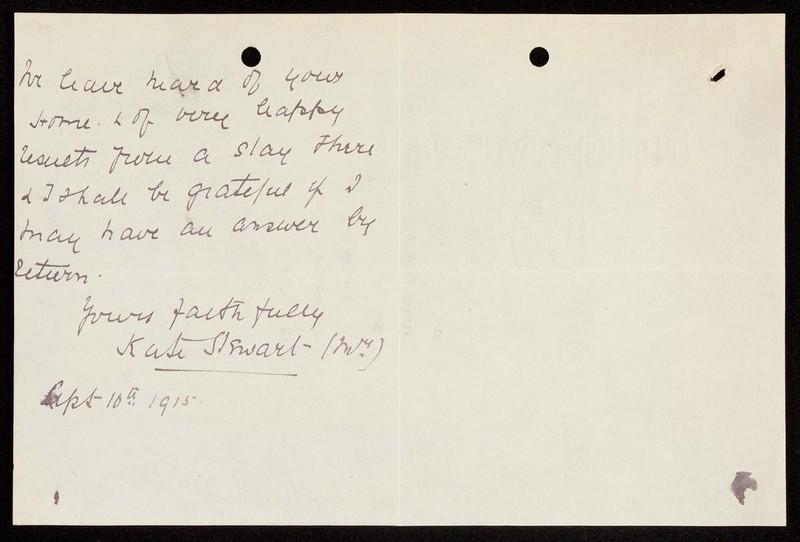 We have heard of your
Home. & of very happy
results from a stay there
& I shall be grateful if I
may have an answer by
return.
Yours faithfully
Kate Stewart - (Mrs)
Sept 10th 1915.